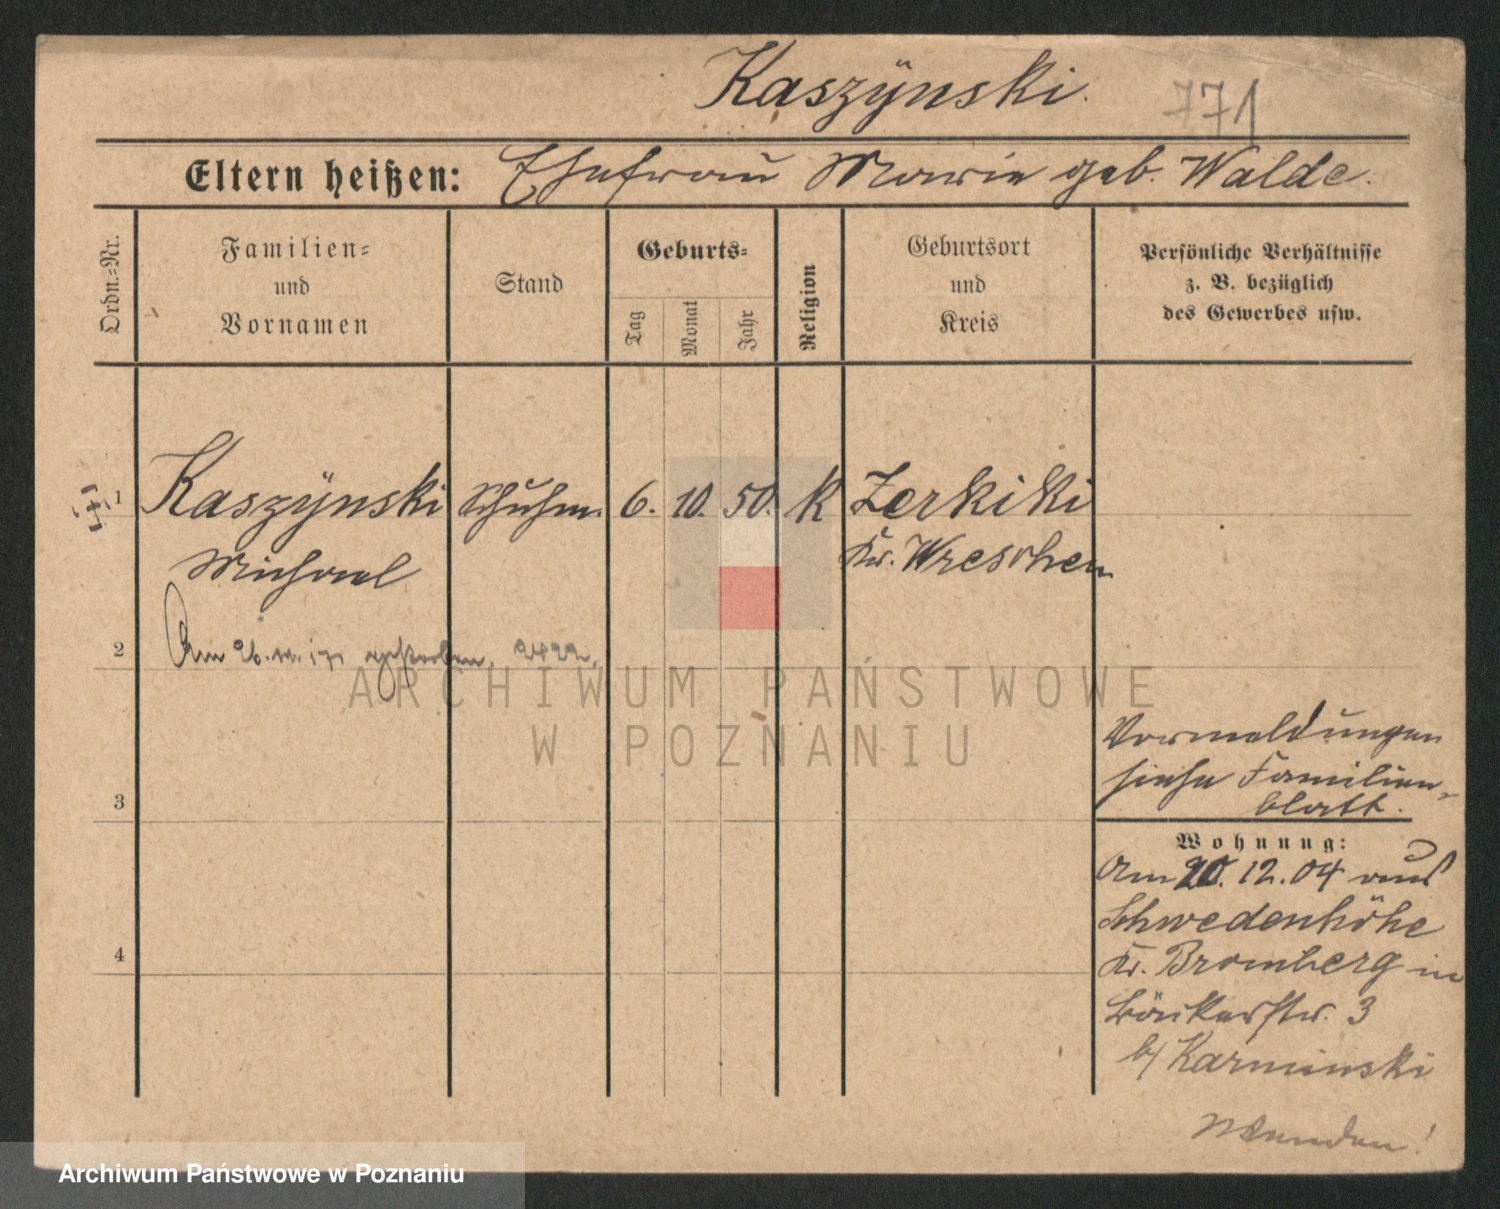 Kaszÿnski.
771
Eltern heißen: Ehefrau Marie geb. Walde.
Ordn.=Nr.
Familien=
und
Vornamen
Stand
Geburts=
Tag
Monat
Jahr
Religion
Geburtsort
und
Kreis
Persönliche Verhältnisse
z. B. bezüglich
des Gewerbes usw.
1 Kaszÿnski Schuhm. 6. 10. 50. k Zerkiki
Michael Kr. Wreschen
2 Am 26. gestorben,
ARCHIWUM PAŃSTWOWE
W POZNANIU
3
4
Vormeldungen
siehe Familien-
blatt.
Wohnung:
Am 20. 12. 04 aus
Schwedenhöhe
Kr. Bromberg in
Bäckerstr. 3
b/ Karminski
Wenden!
Archiwum Państwowe w Poznaniu